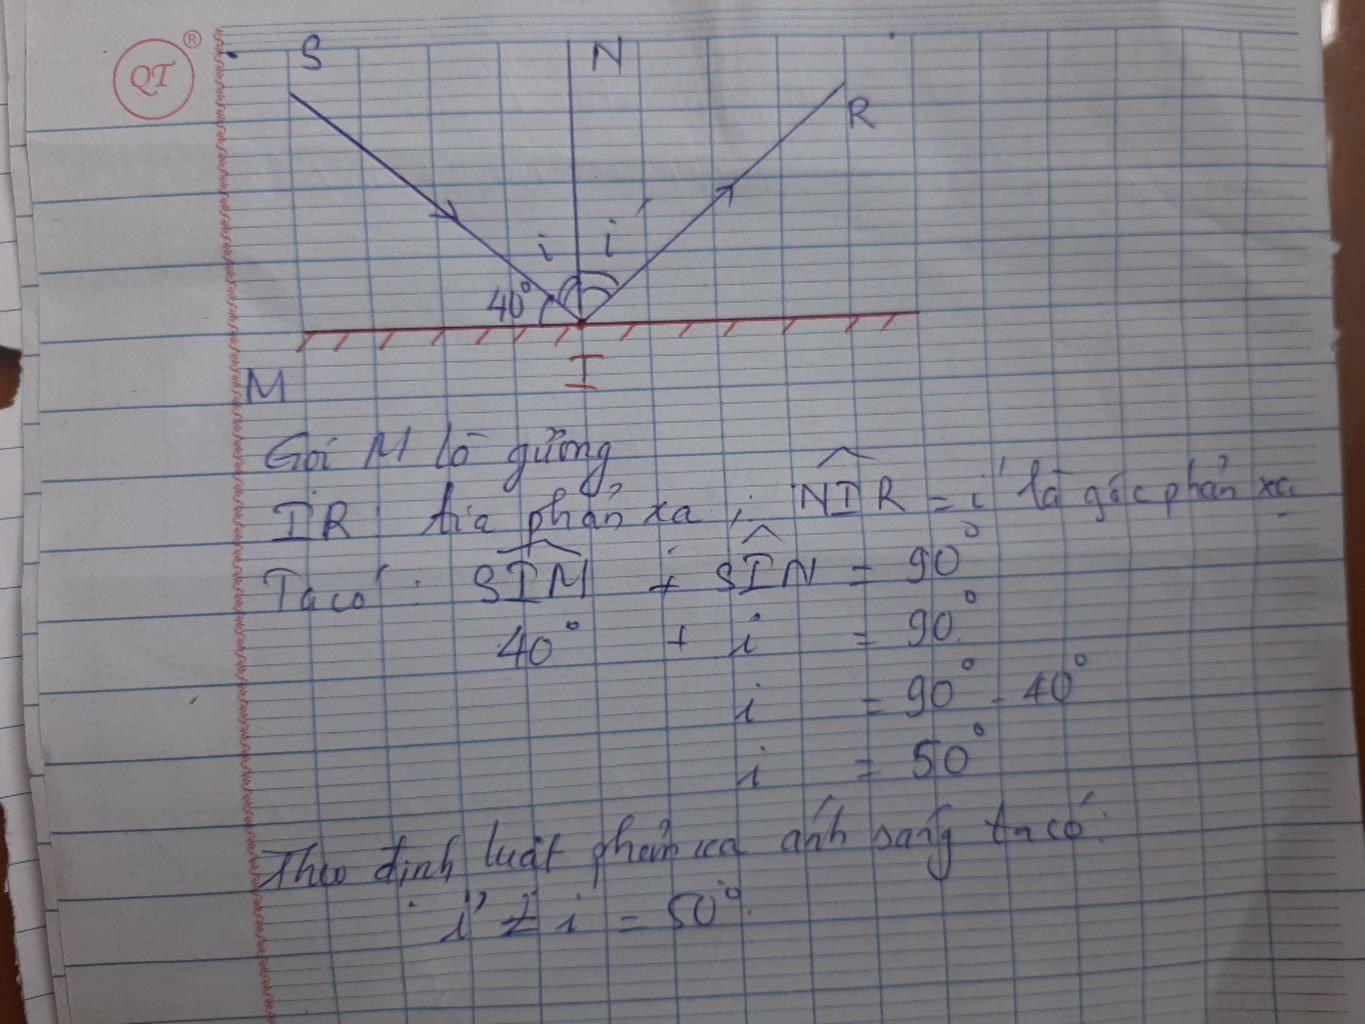 QT ®
S N
R
i i'
40°
I
M
Gọi M là gương
IR tia phản xạ ; NIR = i' là góc phản xạ
Ta có : SIM + SIN = 90°
40° + i = 90°
i = 90° - 40°
i = 50°
Theo định luật phản xạ ánh sáng ta có :
i' = i = 50°.